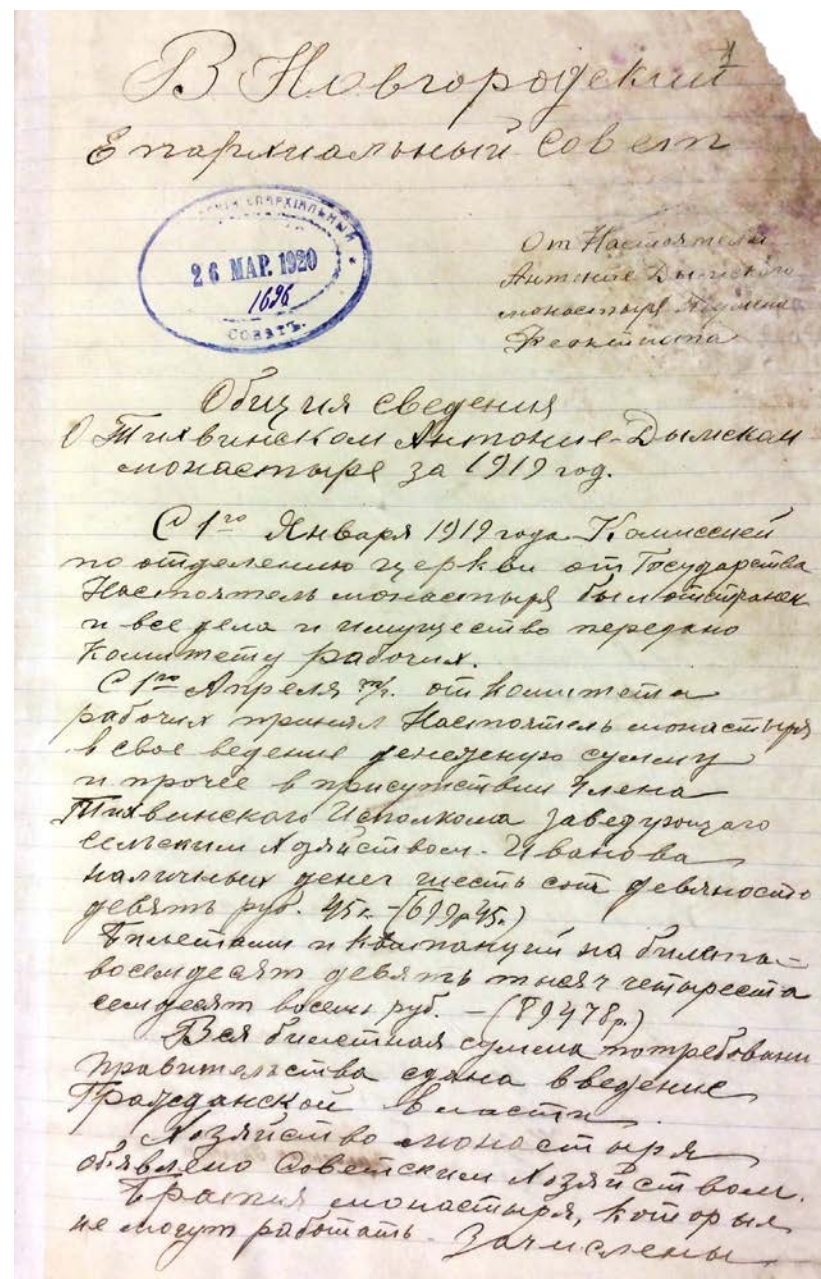 1
В Новгородский
Епархиальный Совет
ЕПАРХІАЛЬНЫЙ
26 МАР. 1920
1696
СОВѢТЪ.
От Настоятеля
Антоние Дымскаго
монастыря Игумена
Феоктиста
Общия сведения
О Тихвинском Антоние-Дымском
монастыре за 1919 год.
С 1го Января 1919 года Комиссией
по отделению церкви от Государства
Настоятель монастыря был отстранен
и все дела и имущество передано
Комитету рабочих.
С 1го Апреля т/г. от комитета
рабочих принял Настоятель монастыря
в свое ведение денежную сумму
и прочее в присутствии Члена
Тихвинского Исполкома Заведующаго
сельским хозяйством Иванова
наличных денег шесть сот девяносто
девять руб. 45к. - (699р 45.)
Билетами и квитанций на билета-
восемдесят девять тысяч четыреста
семдесят восемь руб. - (89478р.)
Вся билетная сумма по требовани
правительства сдана в ведение
Гражданской власти
Хозяйство монастыря
объявлено Советским хозяйством.
Братия монастыря, которыя
не могут работать зачислены